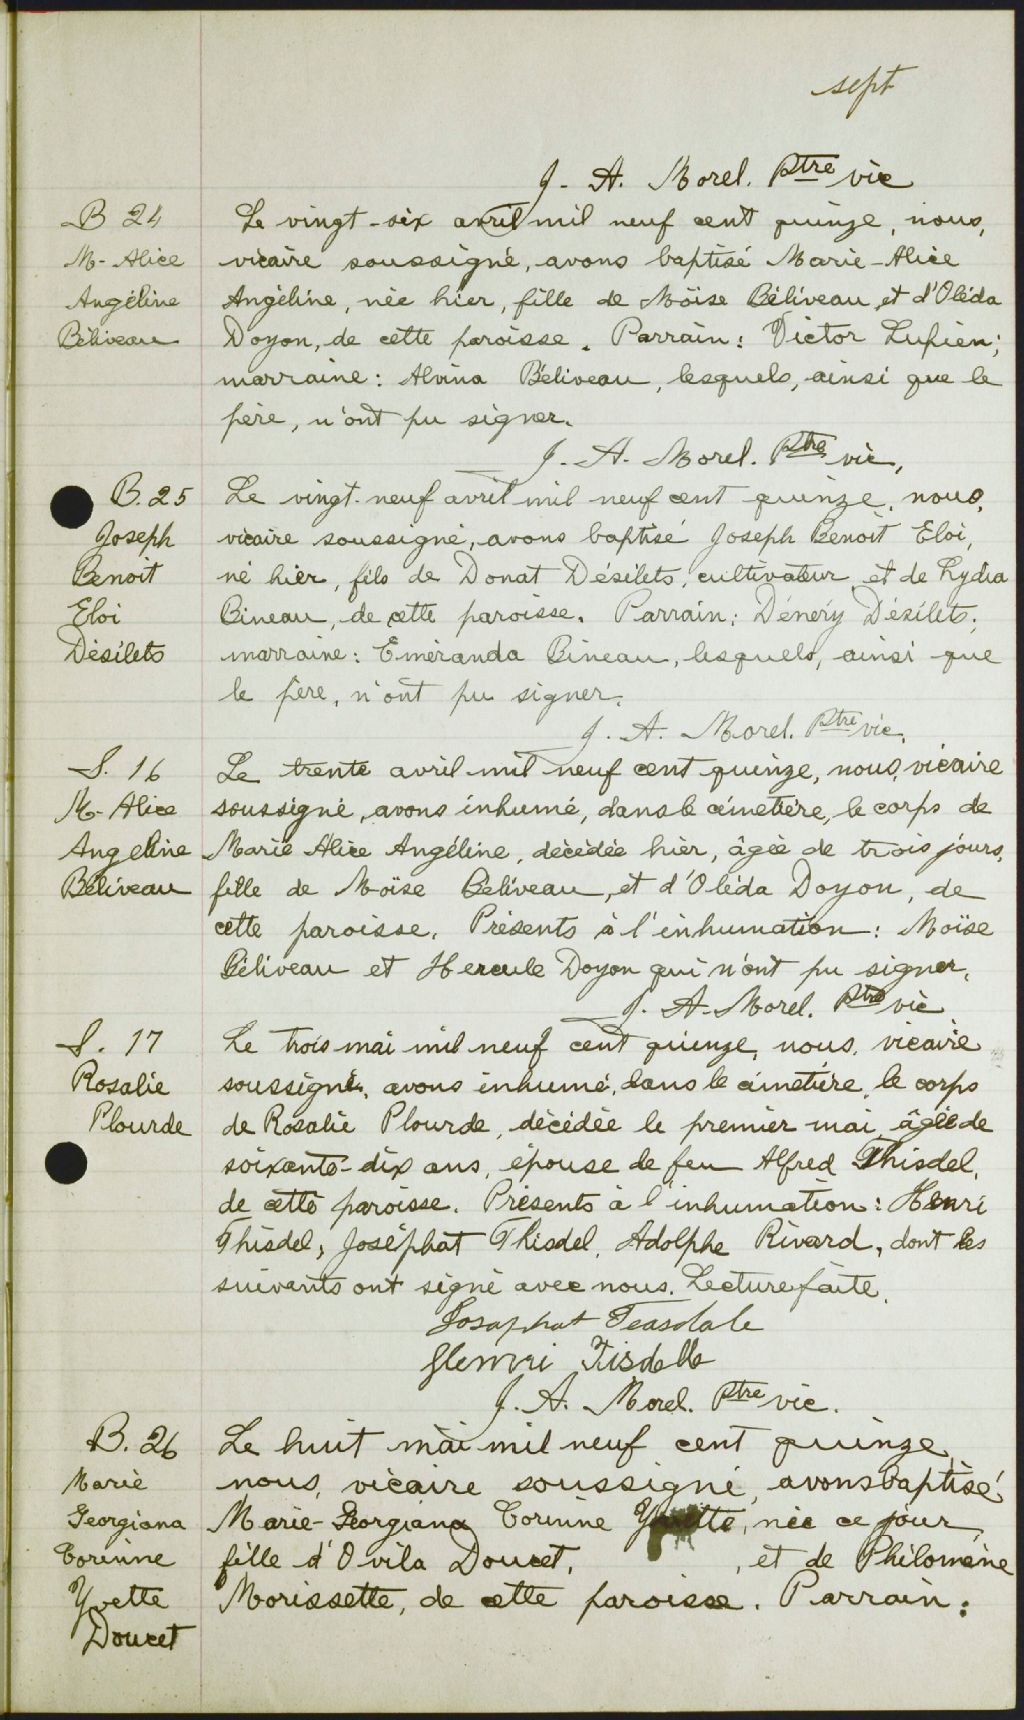 sept
J. A. Morel. Ptre vic
B 24 Le vingt-six avril mil neuf cent quinze, nous,
M-Alice vicaire soussigné, avons baptisé Marie-Alice
Angéline Angéline, née hier, fille de Moïse Béliveau et d'Oléda
Béliveau Doyon, de cette paroisse. Parrain: Victor Lupien;
marraine: Alvina Béliveau, lesquels, ainsi que le
père, n'ont pu signer.
J. A. Morel. Ptre vic,
B. 25 Le vingt-neuf avril mil neuf cent quinze, nous,
Joseph vicaire soussigné, avons baptisé Joseph Benoit Eloi,
Benoit né hier, fils de Donat Désilets, cultivateur et de Lydia
Eloi Bineau, de cette paroisse. Parrain: Dénéry Désilets;
Désilets marraine: Eméranda Bineau, lesquels, ainsi que
le père, n'ont pu signer.
J. A. Morel. Ptre vic.
S. 16 Le trente avril mil neuf cent quinze, nous, vicaire
M-Alice soussigné, avons inhumé, dans le cimetière, le corps de
Angéline Marie Alice Angéline, décédée hier, âgée de trois jours,
Béliveau fille de Moïse Béliveau, et d'Oléda Doyon, de
cette paroisse. Présents à l'inhumation: Moïse
Béliveau et Hercule Doyon qui n'ont pu signer.
J. A. Morel. Ptre vic
S. 17 Le trois mai mil neuf cent quinze, nous, vicaire
Rosalie soussigné, avons inhumé, dans le cimetière, le corps
Plourde de Rosalie Plourde, décédée le premier mai, âgée de
soixante-dix ans, épouse de feu Alfred Thisdel,
de cette paroisse. Présents à l'inhumation: Henri
Thisdel, Joséphat Thisdel, Adolphe Rivard, dont les
suivants ont signé avec nous. Lecture faite.
Josaphat Teasdale
Henri Tisdelle
J. A. Morel. Ptre vic.
B. 26 Le huit mai mil neuf cent quinze,
Marie nous, vicaire soussigné, avons baptisé
Georgiana Marie-Georgiana Corinne Yvette, née ce jour,
Corinne fille d'Ovila Doucet, , et de Philomène
Yvette Morissette, de cette paroisse. Parrain:
Doucet